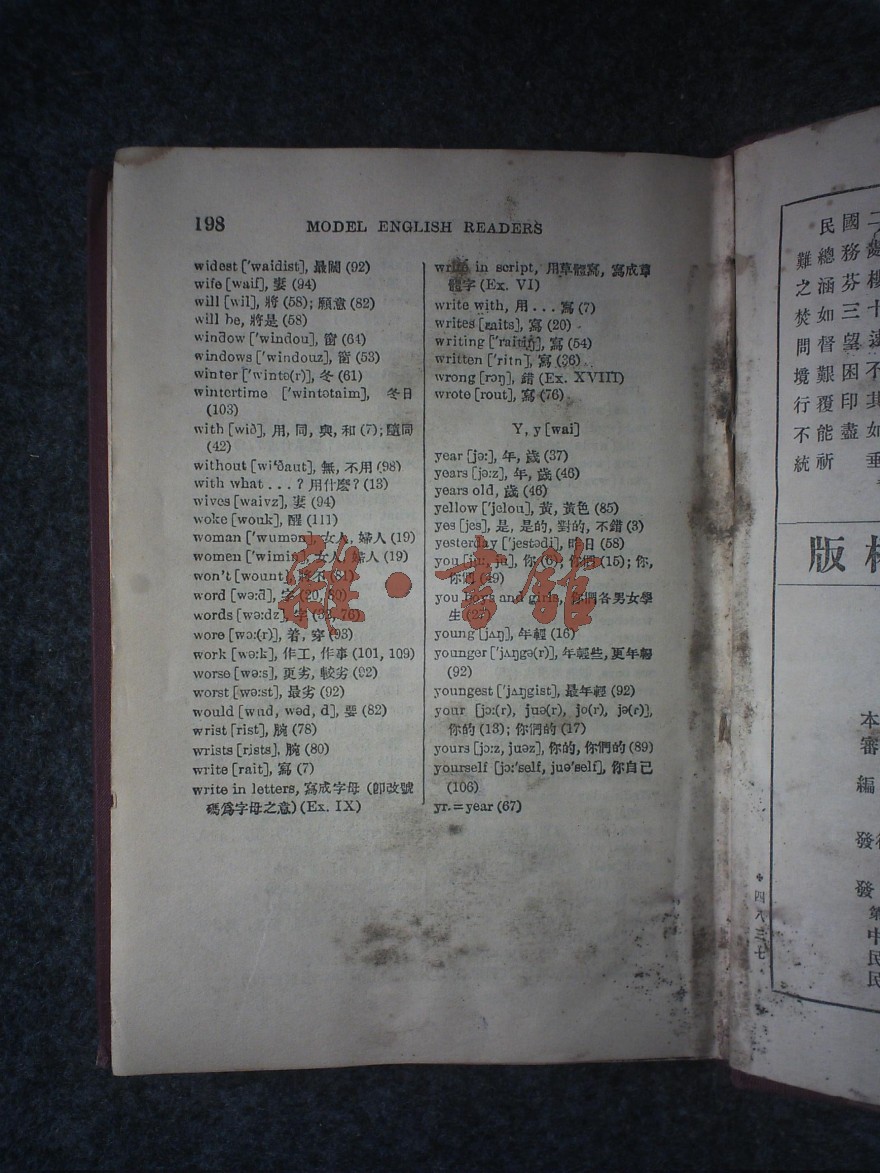 198 MODEL ENGLISH READERS
widest ['waidist], 最闊 (92)
wife [waif], 妻 (94)
will [wil], 將 (58); 願意 (82)
will be, 將是 (58)
window ['windou], 窗 (64)
windows ['windouz], 窗 (53)
winter ['wintə(r)], 冬 (61)
wintertime ['wintətaim], 冬日
(103)
with [wið], 用, 同, 與, 和 (7); 隨同
(42)
without [wi'ðaut], 無, 不用 (98)
with what . . . ? 用什麼? (13)
wives [waivz], 妻 (94)
woke [wouk], 醒 (111)
woman ['wumən], 女人, 婦人 (19)
women ['wimin], 女人, 婦人 (19)
won't [wount], 將不 (81)
word [wə:d], 字 (20, 80)
words [wə:dz], 字 (32, 76)
wore [wɔ:(r)], 着, 穿 (93)
work [wə:k], 作工, 作事 (101, 109)
worse [wə:s], 更劣, 較劣 (92)
worst [wə:st], 最劣 (92)
would [wud, wəd, d], 要 (82)
wrist [rist], 腕 (78)
wrists [rists], 腕 (80)
write [rait], 寫 (7)
write in letters, 寫成字母 (卽改號
碼爲字母之意) (Ex. IX)
write in script, 用草體寫, 寫成草
體字 (Ex. VI)
write with, 用 . . . 寫 (7)
writes [raits], 寫 (20)
writing ['raitiŋ], 寫 (54)
written ['ritn], 寫 (36)
wrong [rɔŋ], 錯 (Ex. XVIII)
wrote [rout], 寫 (76)
Y, y [wai]
year [jə:], 年, 歲 (37)
years [jə:z], 年, 歲 (46)
years old, 歲 (46)
yellow ['jelou], 黃, 黃色 (85)
yes [jes], 是, 是的, 對的, 不錯 (3)
yesterday ['jestədi], 昨日 (58)
you [ju:, ju], 你 (6); 你們 (15); 你,
你們 (49)
you boys and girls, 你們各男女學
生 (27)
young [jʌŋ], 年輕 (16)
younger ['jʌŋgə(r)], 年輕些, 更年輕
(92)
youngest ['jʌŋgist], 最年輕 (92)
your [jɔ:(r), juə(r), jɔ(r), jə(r)],
你的 (13); 你們的 (17)
yours [jɔ:z, juəz], 你的, 你們的 (89)
yourself [jɔ:'self, juə'self], 你自己
(106)
yr. = year (67)
雜·書館
國務芬三望困印盡
民總涵如督艱覆能祈
難之焚問境行不統
版
本
審
編
發行
發
中
民
民
四八三七